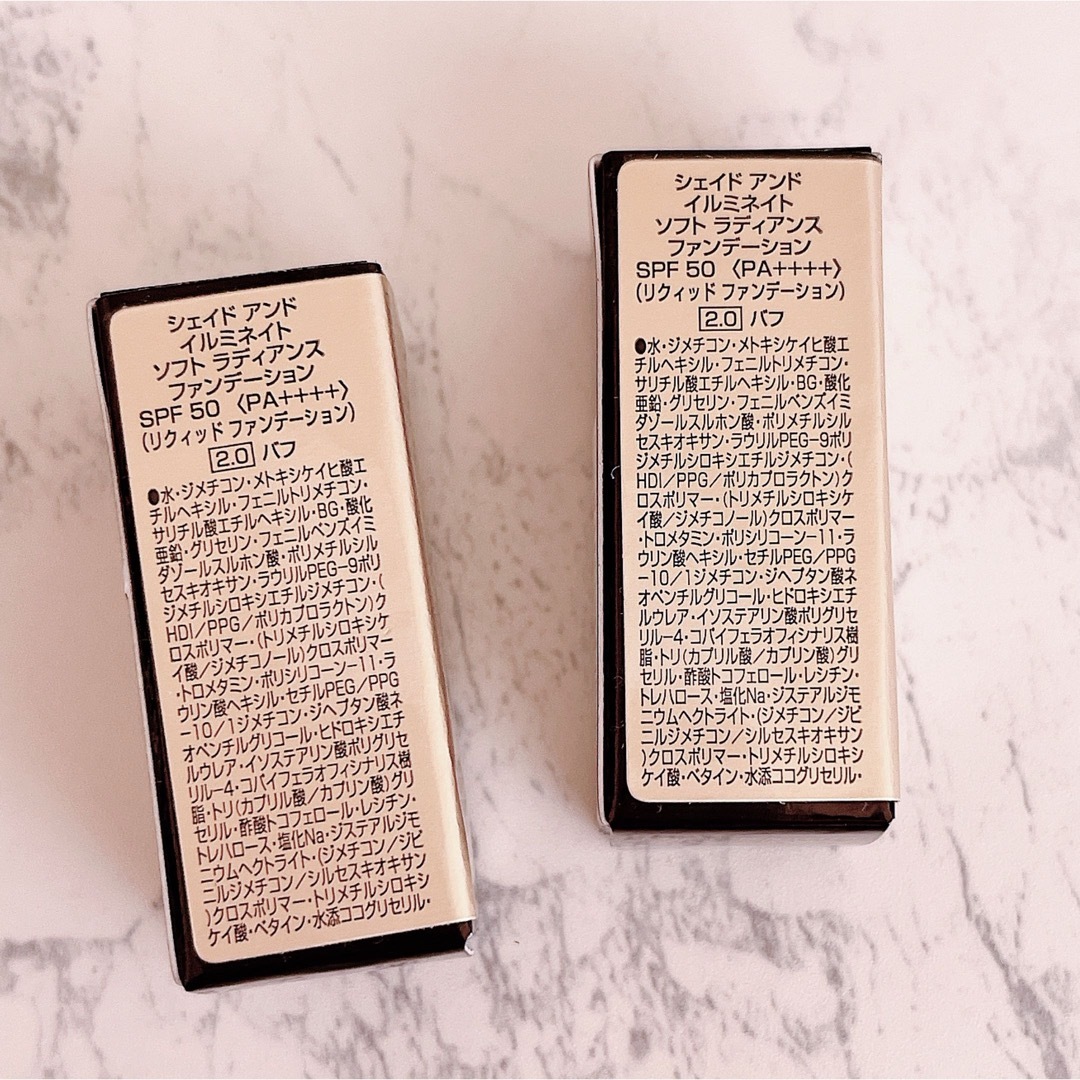 シェイド アンド
イルミネイト
ソフト ラディアンス
ファンデーション
SPF 50 〈PA++++〉
(リクィッド ファンデーション)
2.0 バフ
●水・ジメチコン・メトキシケイヒ酸エ
チルヘキシル・フェニルトリメチコン・
サリチル酸エチルヘキシル・BG・酸化
亜鉛・グリセリン・フェニルベンズイミ
ダゾールスルホン酸・ポリメチルシル
セスキオキサン・ラウリルPEG-9ポリ
ジメチルシロキシエチルジメチコン・(
HDI/PPG/ポリカプロラクトン)ク
ロスポリマー・(トリメチルシロキシケ
イ酸/ジメチコノール)クロスポリマー
・トロメタミン・ポリシリコーン-11・ラ
ウリン酸ヘキシル・セチルPEG/PPG
-10/1ジメチコン・ジヘプタン酸ネ
オペンチルグリコール・ヒドロキシエチ
ルウレア・イソステアリン酸ポリグリセ
リル-4・コパイフェラオフィシナリス樹
脂・トリ(カプリル酸/カプリン酸)グリ
セリル・酢酸トコフェロール・レシチン・
トレハロース・塩化Na・ジステアルジモ
ニウムヘクトライト・(ジメチコン/ジビ
ニルジメチコン/シルセスキオキサン
)クロスポリマー・トリメチルシロキシ
ケイ酸・ベタイン・水添ココグリセリル・
シェイド アンド
イルミネイト
ソフト ラディアンス
ファンデーション
SPF 50 〈PA++++〉
(リクィッド ファンデーション)
2.0 バフ
●水・ジメチコン・メトキシケイヒ酸エ
チルヘキシル・フェニルトリメチコン・
サリチル酸エチルヘキシル・BG・酸化
亜鉛・グリセリン・フェニルベンズイミ
ダゾールスルホン酸・ポリメチルシル
セスキオキサン・ラウリルPEG-9ポリ
ジメチルシロキシエチルジメチコン・(
HDI/PPG/ポリカプロラクトン)ク
ロスポリマー・(トリメチルシロキシケ
イ酸/ジメチコノール)クロスポリマー
・トロメタミン・ポリシリコーン-11・ラ
ウリン酸ヘキシル・セチルPEG/PPG
-10/1ジメチコン・ジヘプタン酸ネ
オペンチルグリコール・ヒドロキシエチ
ルウレア・イソステアリン酸ポリグリセ
リル-4・コパイフェラオフィシナリス樹
脂・トリ(カプリル酸/カプリン酸)グリ
セリル・酢酸トコフェロール・レシチン・
トレハロース・塩化Na・ジステアルジモ
ニウムヘクトライト・(ジメチコン/ジビ
ニルジメチコン/シルセスキオキサン
)クロスポリマー・トリメチルシロキシ
ケイ酸・ベタイン・水添ココグリセリル・